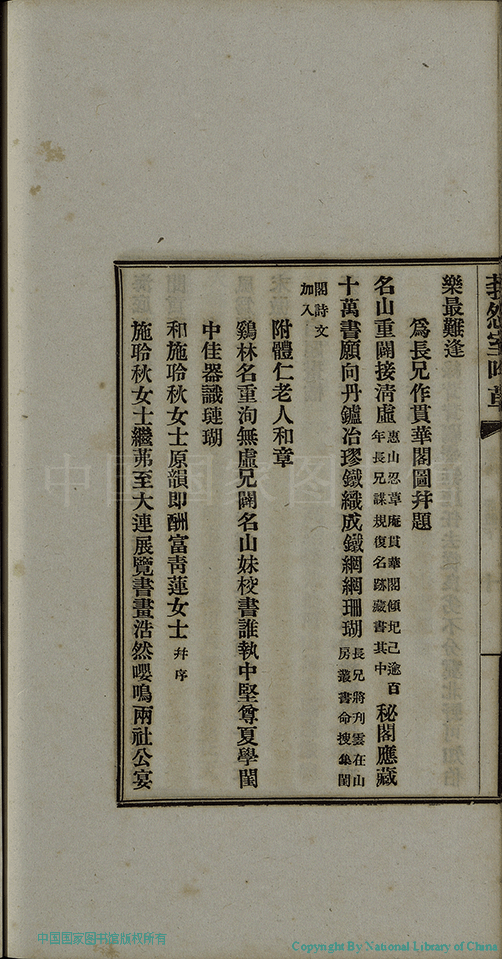 樂最難逢
爲長兄作貫華閣圖幷題
名山重闢接淸虛惠山忍草庵貫華閣傾圮已逾百年長兄謀規復名跡藏書其中秘閣應藏
十萬書願向丹鑪冶璆鐵織成鐵網網珊瑚長兄將刋雲在山房叢書命搜集閨
閣詩文加入
附體仁老人和章
鷄林名重洵無虛兄闢名山妹校書誰執中堅尊夏學閨
中佳器識璉瑚
和施聆秋女士原韻卽酬富靑蓮女士幷序
施聆秋女士繼茀至大連展覽書畫浩然嚶鳴兩社公宴
中国国家图书馆版权所有
Copyright By National Library of China